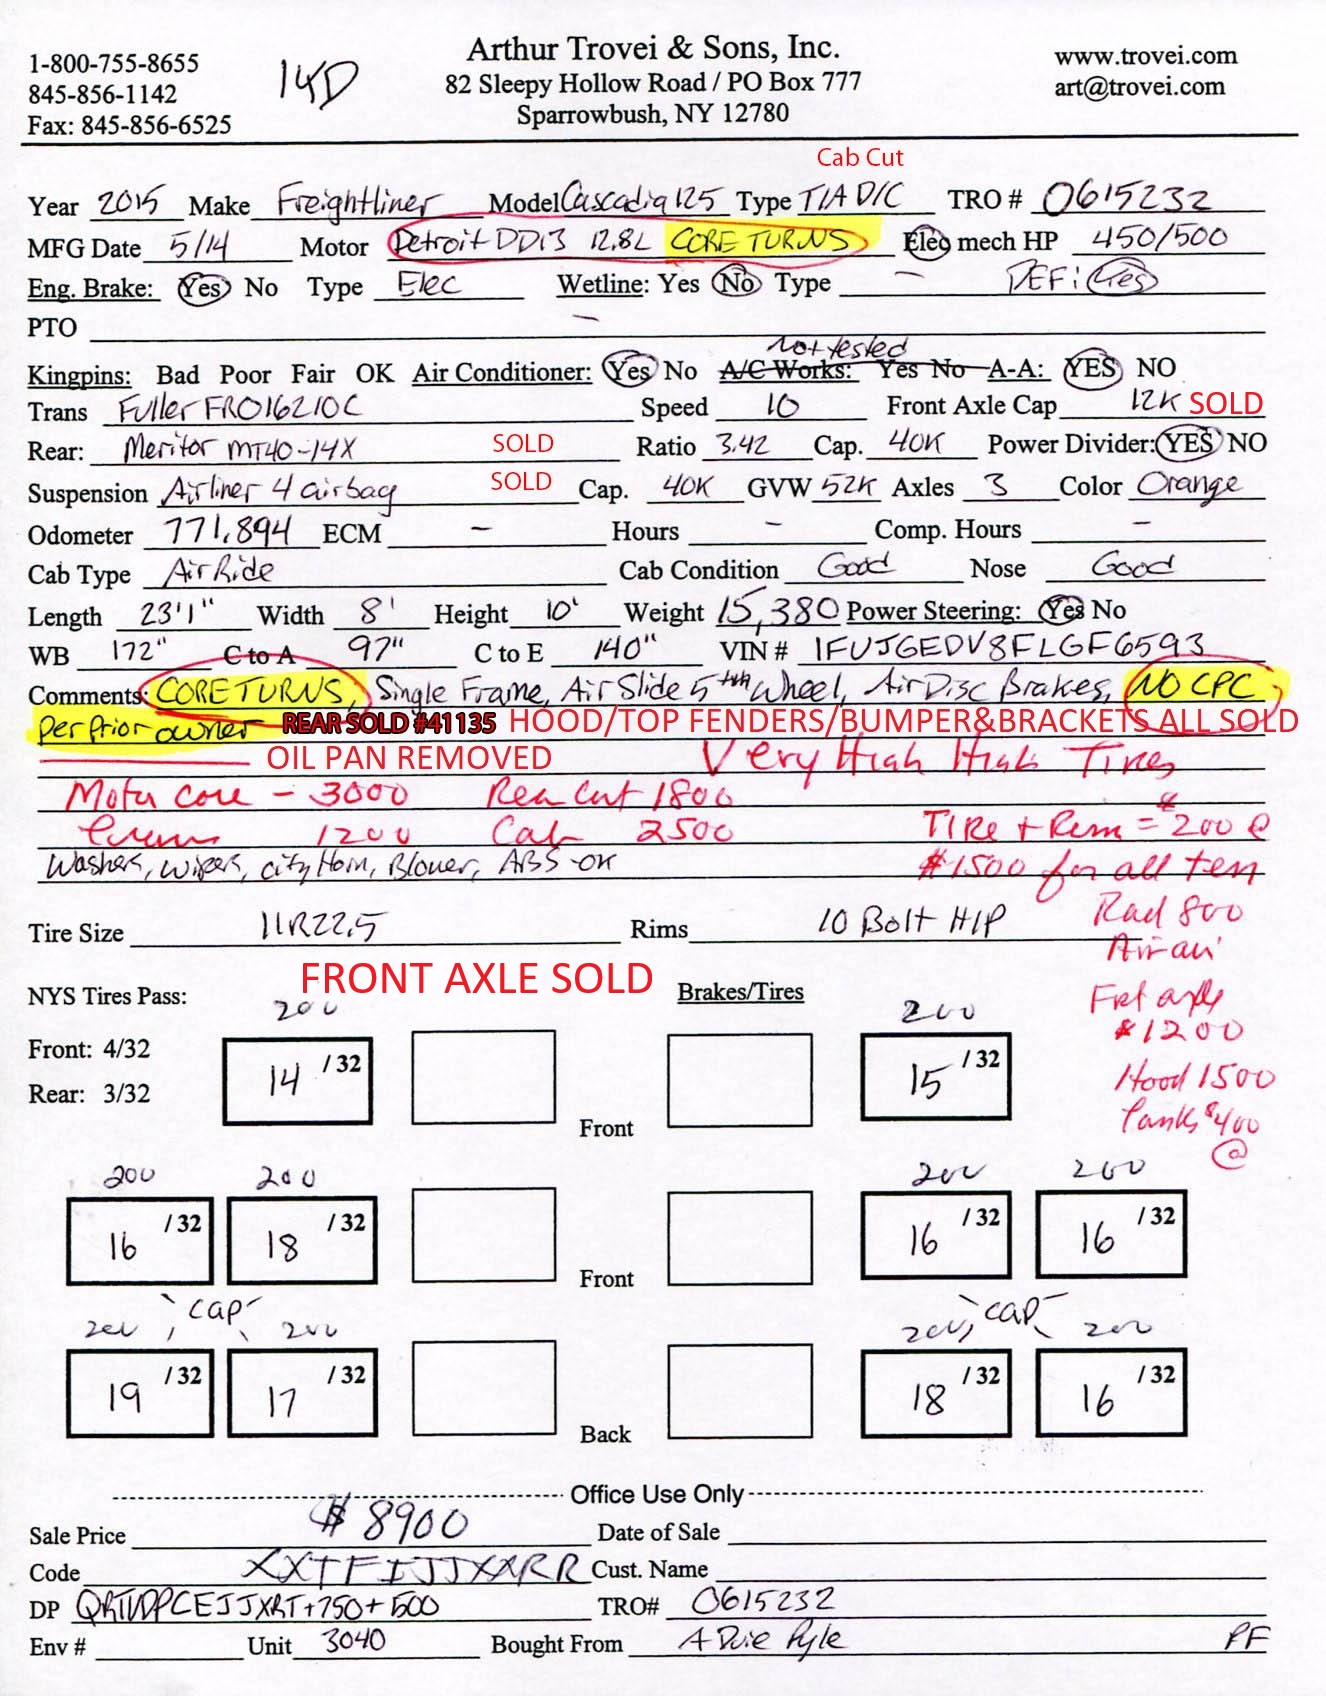 1-800-755-8655
845-856-1142
Fax: 845-856-6525
14D
Arthur Trovei & Sons, Inc.
82 Sleepy Hollow Road / PO Box 777
Sparrowbush, NY 12780
www.trovei.com
art@trovei.com
Cab Cut
Year 2015 Make Freightliner Model Cascadia 125 Type T/A D/C TRO # 0615232
MFG Date 5/14 Motor Detroit DD13 12.8L CORE TURNS Elec mech HP 450/500
Eng. Brake: Yes No Type Elec Wetline: Yes No Type - DEF: Yes
PTO -
not tested
Kingpins: Bad Poor Fair OK Air Conditioner: Yes No A/C Works: Yes No A-A: YES NO
Trans Fuller FRO16210C Speed 10 Front Axle Cap 12K SOLD
Rear: Meritor MT40-14X SOLD Ratio 3.42 Cap. 40K Power Divider: YES NO
Suspension Airliner 4 airbag SOLD Cap. 40K GVW 52K Axles 3 Color Orange
Odometer 771,894 ECM - Hours - Comp. Hours -
Cab Type Air Ride Cab Condition Good Nose Good
Length 23'1" Width 8' Height 10' Weight 15,380 Power Steering: Yes No
WB 172" C to A 97" C to E 140" VIN # 1FUJGEDV8FLGF6593
Comments: CORE TURNS, Single Frame, Air Slide 5th Wheel, Air Disc Brakes, NO CPC
per prior owner REAR SOLD #41135 HOOD/TOP FENDERS/BUMPER&BRACKETS ALL SOLD
OIL PAN REMOVED Very High High Tires
Motor core - 3000 Rear Cut 1800
1200 Cab 2500 Tire + Rim = $200 @
Washers, Wipers, city Horn, Blower, ABS-OK $1500 for all ten
Tire Size 11R22.5 Rims 10 Bolt H/P
Rad 800
Air-air
Frt axle
$1200
Hood 1500
Tanks $400
@
FRONT AXLE SOLD
NYS Tires Pass: Brakes/Tires
200 200
Front: 4/32
Rear: 3/32
14 /32 15 /32
Front
200 200 200 200
16 /32 18 /32 16 /32 16 /32
Front
cap cap
200 200 200 200
19 /32 17 /32 18 /32 16 /32
Back
Office Use Only
Sale Price $8900 Date of Sale
Code XXTFIJJXXRR Cust. Name
DP TRO# 0615232
Env # Unit 3040 Bought From A Duie Pyle PF